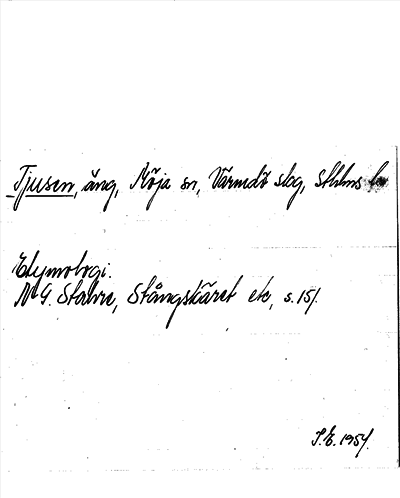 Tjusen, äng, Möja sn, Värmdö skg, Sthlms län
Etymologi.
N G. Stahre, Stångskäret etc, s. 15f.
S.E. 1954.